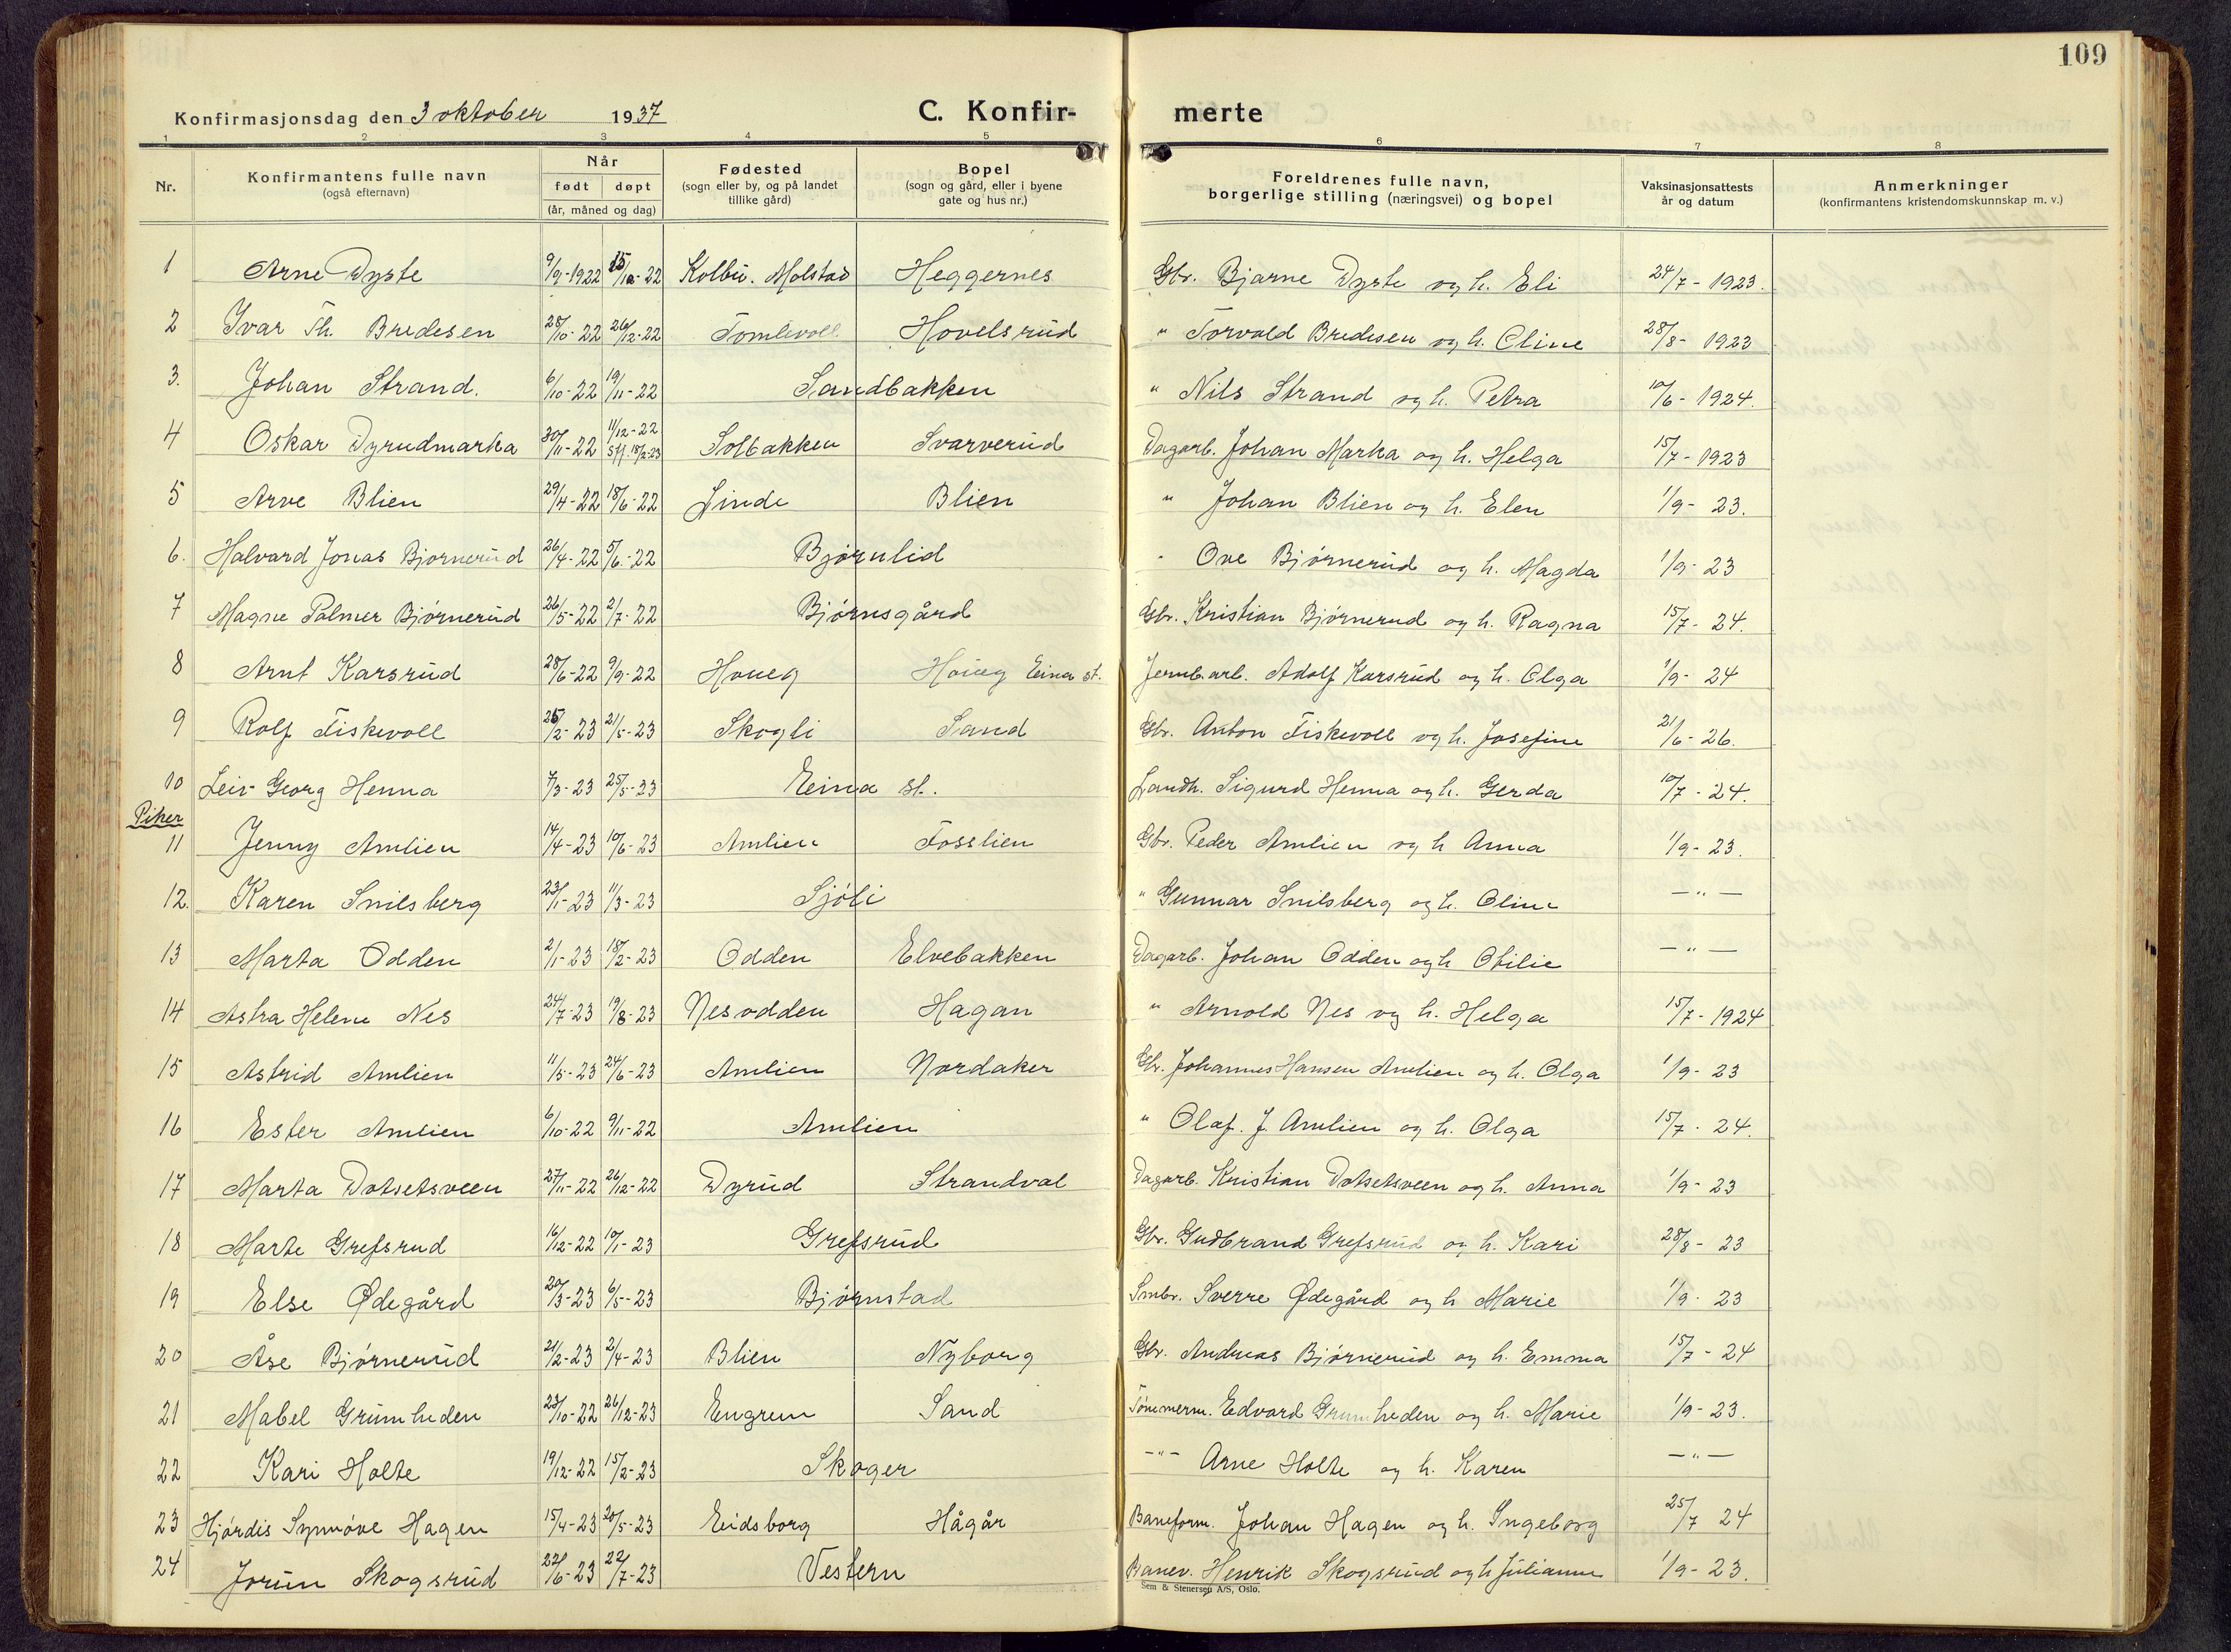 109
Konfirmasjonsdag den 3 oktober 1937 C. Konfir- merte
1 2 3 4 5 6 7 8
Nr. Konfirmantens fulle navn (også efternavn) Når født døpt (år, måned og dag) Fødested (sogn eller by, og på landet tillike gård) Bopel (sogn og gård, eller i byene gate og hus nr.) Foreldrenes fulle navn, borgerlige stilling (næringsvei) og bopel Vaksinasjonsattests år og datum Anmerkninger (konfirmantens kristendomskunnskap m. v.)
1 Arne Dyste 9/9-1922 15/10-22 Kolbu. Molstad Heggernes Gbr. Bjarne Dyste og h. Eli 24/7-1923.
2 Ivar Th. Bredesen 28/10-22 26/12-22 Tomlevoll Hovelsrud " Torvald Bredesen og h. Oline 28/8-1923
3. Johan Strand. 6/10-22 19/11-22 Sandbakken " Nils Strand og h. Petra 10/6-1924.
4 Oskar Dyrudmarka 30/11-22 11/12-22 stf. 18/2-23 Solbakken Svarverud Dagarb. Johan Marka og h. Helga 15/7-1923
5 Arve Blien 29/4-22 18/6-22 Linde Blien " Johan Blien og h. Elen 1/9-23.
6. Halvard Jonas Bjørnerud 26/4-22 5/6-22 Bjørnlid " Ove Bjørnerud og h. Magda 1/9-23
7 Magne Palmer Bjørnerud 26/5-22 2/7-22 Bjørnsgård Gbr. Kristian Bjørnerud og h. Ragna 15/7-24.
8 Arnt Karsrud 28/6-22 9/9-22 Houeg Houeg Eina st. Jernb.arb. Adolf Karsrud og h. Olga 1/9-24
9 Rolf Fiskevoll 25/2-23 21/5-23 Skogli Sand Gbr. Anton Fiskevoll og h. Josefine 21/6-26.
10 Leir Georg Henna 7/3-23 25/5-23 Eina st. Landh. Sigurd Henna og h. Gerda 10/7-24.
Piker
11 Jenny Amlien 14/4-23 10/6-23 Amlien Fosslien Gbr. Peder Amlien og h Anna 1/9-23.
12. Karen Snilsberg 23/1-23 11/3-23 Sjøli " Gunnar Snilsberg og h. Oline — " —
13 Marta Odden 2/1-23 18/2-23 Odden Elvebakken Dagarb. Johan Odden og h Otilie — " —
14 Astra Helene Nes 24/7-23 19/8-23 Nesodden Hagan " Arnold Nes og h. Helga 15/7-1924
15 Astrid Amlien 11/5-23 24/6-23 Amlien Nordaker Gbr. Johannes Hansen Amlien og h. Olga 1/9-23
16 Ester Amlien 6/10-22 9/11-22 Amlien " Olaf. J. Amlien og h. Olga 15/7-24.
17 Marta Dotsetsveen 27/11-22 26/12-22 Dyrud Strandval Dagarb. Kristian Dotsetsveen og h. Anna 1/9-23
18 Marte Grefsrud 16/12-22 10/1-23 Grefsrud Gbr. Gudbrand Grefsrud og h. Kari 28/8-23
19 Else Ødegård 20/3-23 6/5-23 Bjørnstad Smbr. Sverre Ødegård og h Marie 1/9-23
20 Åse Bjørnerud 21/2-23 2/4-23 Blien Nyborg Gbr. Andreas Bjørnerud og h. Emma 15/7-24
21 Mabel Grumheden 23/10-22 26/12-23 Engrem Sand Tømmerm. Edvard Grumheden og h. Marie 1/9-23.
22 Kari Holte 19/12-22 15/2-23 Skoger -"- Arne Holte og h. Karen — " —
23 Hjørdis Synnøve Hagen 15/4-23 20/5-23 Eidsborg Hågår Baneform. Johan Hagen og h. Ingeborg 25/7 24
24 Jorun Skogsrud 22/6-23 22/7-23 Vestern Banev. Henrik Skogsrud og h Julianne 1/9-23.
Sem & Stenersen A/S, Oslo.